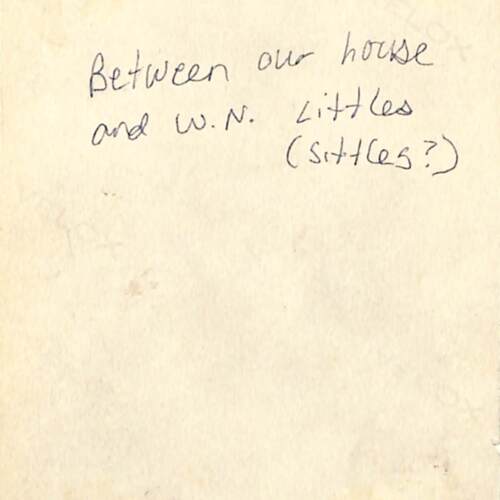 Between our house
and W.N. Littles
(Sittles?)